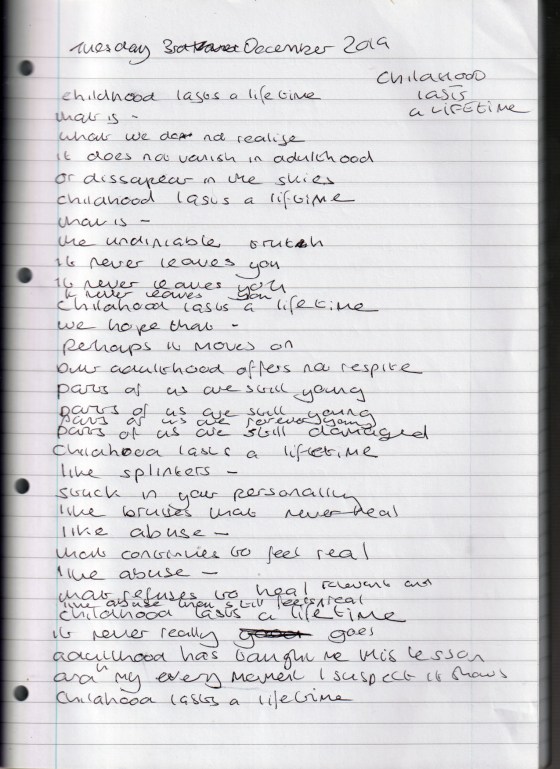 Tuesday 3rd December 2019
Childhood
lasts
a LIFETIME
childhood lasts a lifetime
that is -
what we do not realise
it does not vanish in adulthood
or dissapear in the skies
childhood lasts a lifetime
that is -
the undiniable truth
it never leaves you
it never leaves you
it never leaves you
childhood lasts a lifetime
we hope that -
perhaps it moves on
our adulthood offers no respite
parts of us are still young
parts of us are still young
parts of us are forever young
parts of us are still damaged
Childhood lasts a lifetime
like splinters -
stuck in your personality
like bruises that never heal
like abuse -
that continues to feel real
like abuse -
that refuses to heal relevant and
like abuse that still feels real
childhood lasts a lifetime
it never really goes
adulthood has taught me this lesson
and in my every moment I suspect it shows
Childhood lasts a lifetime